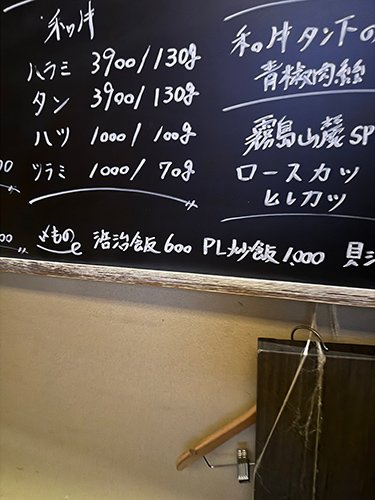 和牛
ハラミ 3900/130g
タン 3900/130g
ハツ 1000/100g
ツラミ 1000/70g
和牛タン下の
青椒肉絲
霧島山麓SP
ロースカツ
ヒレカツ
〆もの 治飯600 PL炒飯1,000 貝